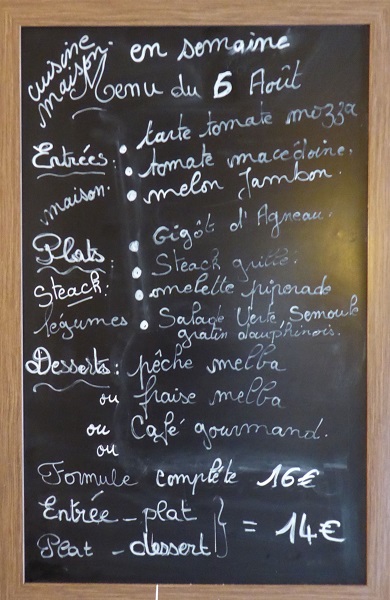 cuisine maison.
en semaine
Menu du 5 Août
tarte tomate mozza
Entrées: • tomate macédoine.
maison. • melon Jambon.
• Gigôt d'Agneau.
Plats: • Steack grillé.
Steack: • omelette piperade
légumes • Salade Verte, Semoule
gratin dauphinois.
Desserts: pêche melba
ou fraise melba
ou Café gourmand.
ou
Formule complète 16€
Entrée - plat
Plat - dessert } = 14€